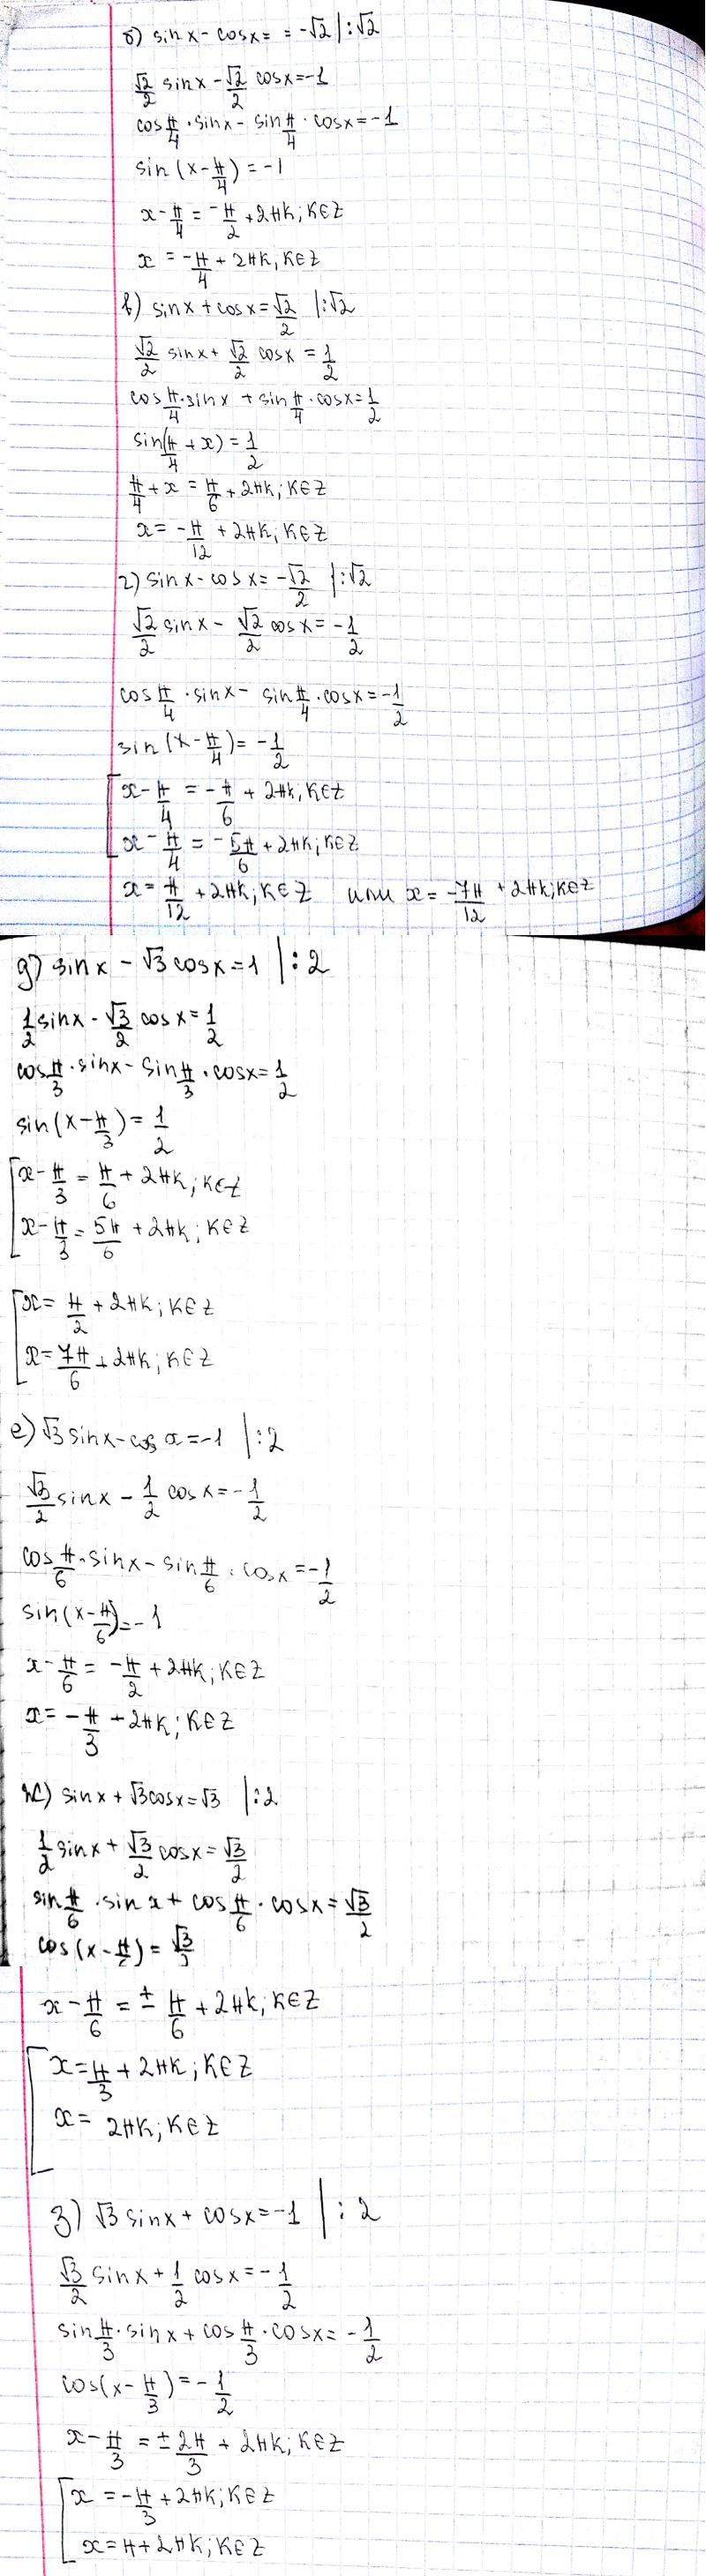 б) sin x - cos x = = -√2 |:√2
√2/2 sin x - √2/2 cos x = -1
cos π/4 · sin x - sin π/4 · cos x = -1
sin (x - π/4) = -1
x - π/4 = -π/2 + 2πk; k∈Z
x = -π/4 + 2πk, k∈Z
в) sin x + cos x = √2/2 |:√2
√2/2 sin x + √2/2 cos x = 1/2
cos π/4 · sin x + sin π/4 · cos x = 1/2
sin(π/4 + x) = 1/2
π/4 + x = π/6 + 2πk; k∈Z
x = -π/12 + 2πk; k∈Z
г) sin x - cos x = -√2/2 |:√2
√2/2 sin x - √2/2 cos x = -1/2
cos π/4 · sin x - sin π/4 · cos x = -1/2
sin (x - π/4) = -1/2
x - π/4 = -π/6 + 2πk, k∈Z
x - π/4 = -5π/6 + 2πk; k∈Z
x = π/12 + 2πk; k∈Z или x = -7π/12 + 2πk; k∈Z
д) sin x - √3 cos x = 1 |:2
1/2 sin x - √3/2 cos x = 1/2
cos π/3 · sin x - sin π/3 · cos x = 1/2
sin (x - π/3) = 1/2
x - π/3 = π/6 + 2πk; k∈Z
x - π/3 = 5π/6 + 2πk; k∈Z
x = π/2 + 2πk; k∈Z
x = 7π/6 + 2πk; k∈Z
е) √3 sin x - cos x = -1 |:2
√3/2 sin x - 1/2 cos x = -1/2
cos π/6 · sin x - sin π/6 · cos x = -1/2
sin (x - π/6) = -1
x - π/6 = -π/2 + 2πk; k∈Z
x = -π/3 + 2πk; k∈Z
ж) sin x + √3 cos x = √3 |:2
1/2 sin x + √3/2 cos x = √3/2
sin π/6 · sin x + cos π/6 · cos x = √3/2
cos (x - π/6) = √3/2
x - π/6 = ± π/6 + 2πk, k∈Z
x = π/3 + 2πk; k∈Z
x = 2πk; k∈Z
з) √3 sin x + cos x = -1 |:2
√3/2 sin x + 1/2 cos x = -1/2
sin π/3 · sin x + cos π/3 · cos x = -1/2
cos (x - π/3) = -1/2
x - π/3 = ± 2π/3 + 2πk; k∈Z
x = -π/3 + 2πk; k∈Z
x = π + 2πk; k∈Z